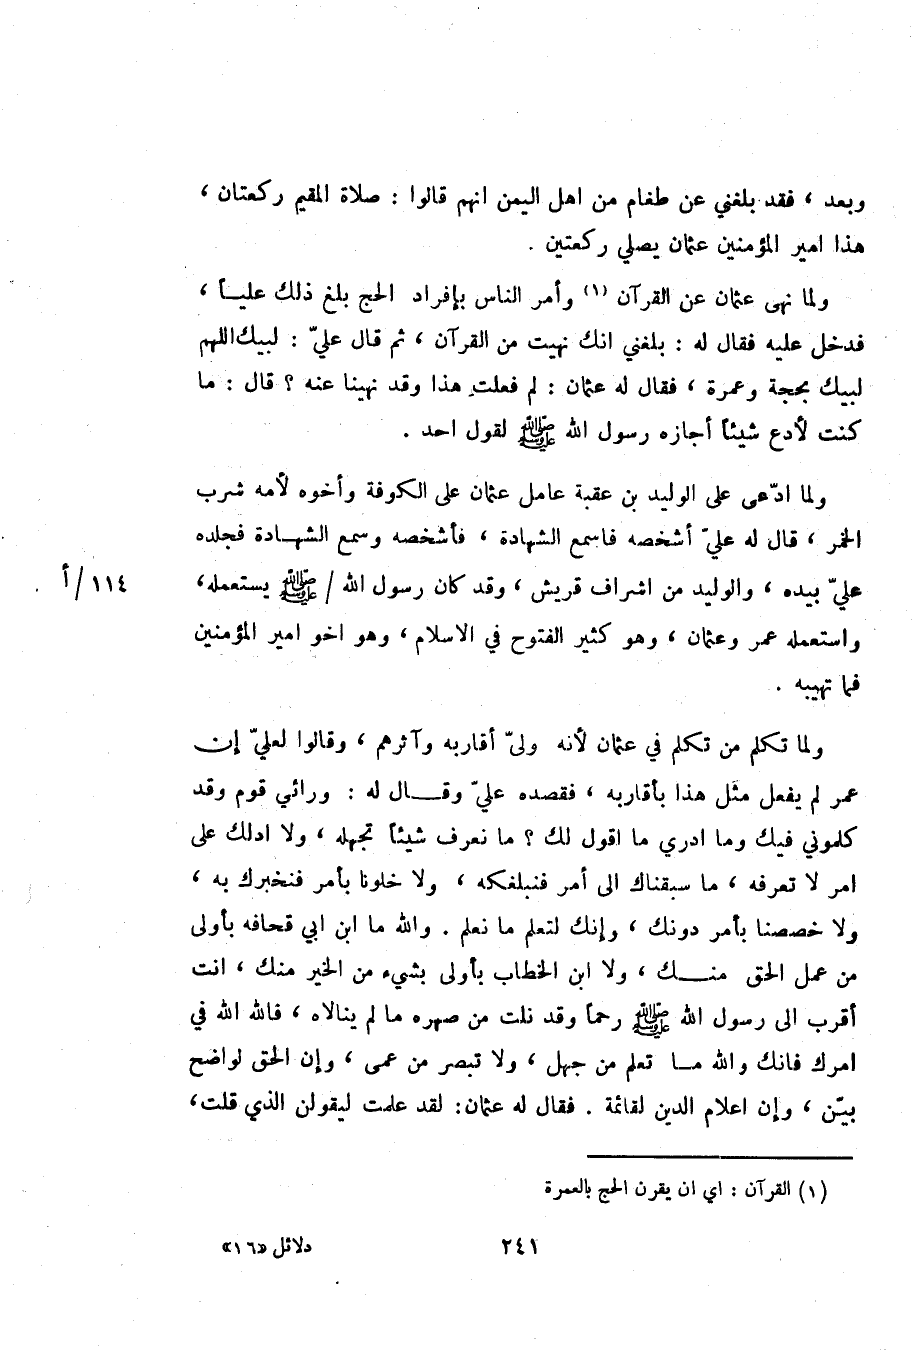 وبعد ، فقد بلغني عن طغام من اهل اليمن انهم قالوا : صلاة المقيم ركعتان ،
هذا امير المؤمنين عثمان يصلي ركعتين .
ولما نهى عثمان عن القرآن (١) وأمر الناس بإفراد الحج بلغ ذلك علياً ،
فدخل عليه فقال له : بلغني انك نهيت من القرآن ، ثم قال عليّ : لبيك اللهم
لبيك بحجة وعمرة ، فقال له عثمان : لم فعلت هذا وقد نهينا عنه ؟ قال : ما
كنت لأدع شيئاً أجازه رسول الله ﷺ لقول احد .
ولما ادّعى على الوليد بن عقبة عامل عثمان على الكوفة وأخوه لأمه شرب
الخمر ، قال له عليّ أشخصه فاسمع الشهادة ، فأشخصه وسمع الشهادة فجلده
عليّ بيده ، والوليد من اشراف قريش ، وقد كان رسول الله / ﷺ يستعمله،
١١٤/أ
واستعمله عمر وعثمان ، وهو كثير الفتوح في الاسلام ، وهو اخو امير المؤمنين
فما تهيبه .
ولما تكلم من تكلم في عثمان لأنه ولىّ أقاربه وآثرهم ، وقالوا لعليّ إن
عمر لم يفعل مثل هذا بأقاربه ، فقصده عليّ وقال له : ورائي قوم وقد
كلموني فيك وما ادري ما اقول لك ؟ ما نعرف شيئاً تجهله ، ولا ادلك على
امر لا تعرفه ، ما سبقناك الى أمر فنبلغكه ، ولا خلونا بأمر فنخبرك به ،
ولا خصصنا بأمر دونك ، وإنك لتعلم ما نعلم . والله ما ابن ابي قحافه بأولى
من عمل الحق منك ، ولا ابن الخطاب بأولى بشيء من الخير منك ، انت
أقرب الى رسول الله ﷺ رحماً وقد نلت من صهره ما لم ينالاه ، فالله الله في
امرك فانك والله ما تعلم من جهل ، ولا تبصر من عمى ، وإن الحق لواضح
بيّن ، وإن اعلام الدين لقائمة . فقال له عثمان: لقد علمت ليقولن الذي قلت،
(١) القرآن : اي ان يقرن الحج بالعمرة
٢٤١
دلائل «١٦»